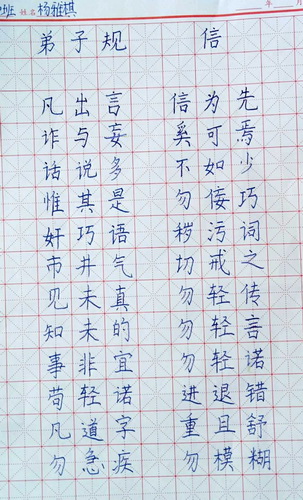 班 姓名 杨雅棋 年 月
弟子规 信
凡出言 信为先
诈与妄 奚可焉
话说多 不如少
惟其是 勿佞巧
奸巧语 秽污词
市井气 切戒之
见未真 勿轻传
知未的 勿轻言
事非宜 勿轻诺
苟轻诺 进退错
凡道字 重且舒
勿急疾 勿模糊